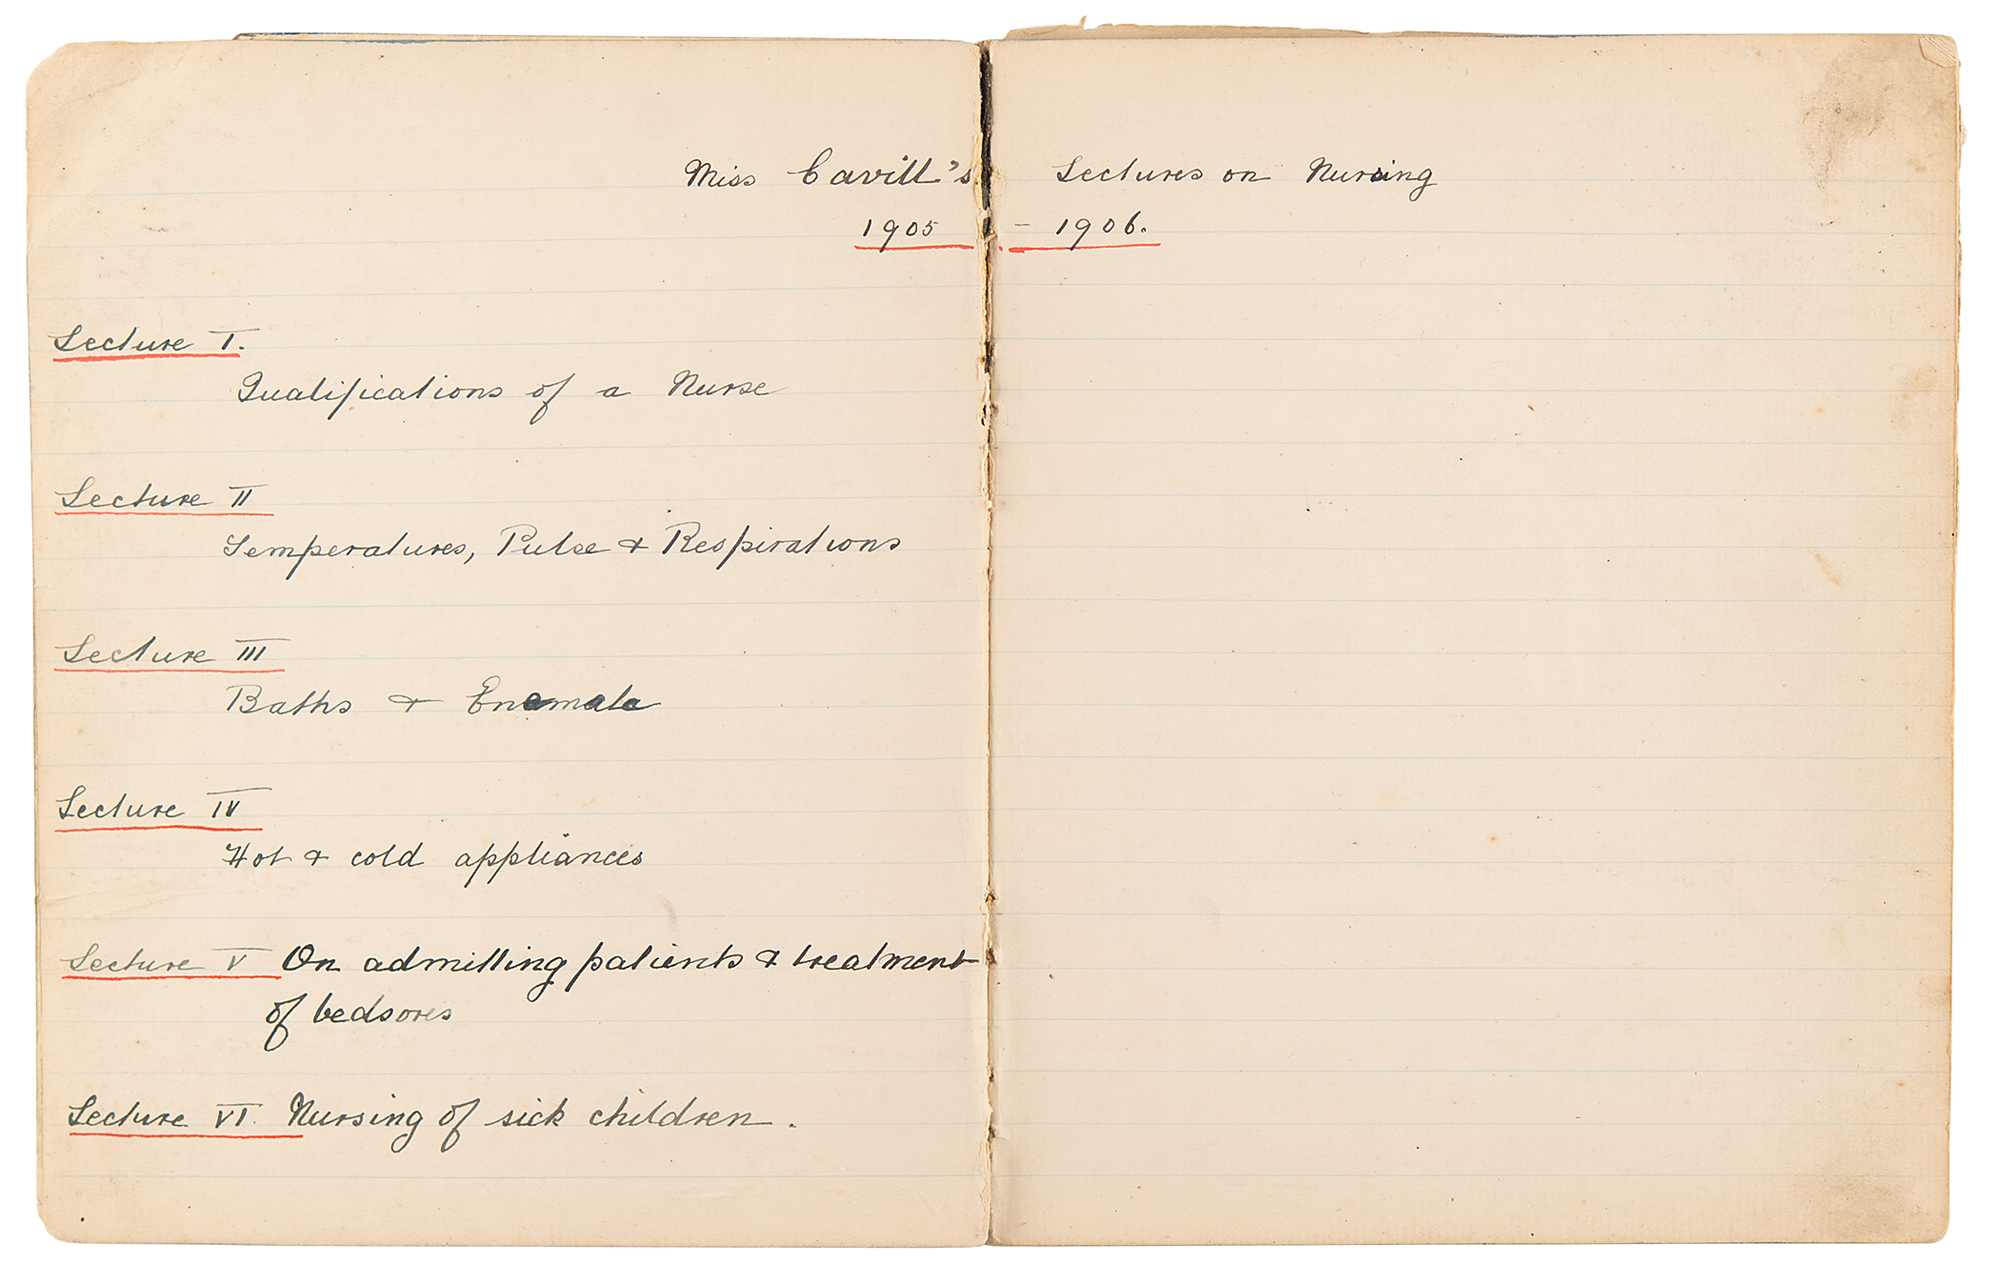 Miss Cavill's Lectures on Nursing
1905 - 1906.
Lecture I.
Qualifications of a Nurse
Lecture II
Temperatures, Pulse & Respirations
Lecture III
Baths & Enemata
Lecture IV
Hot & cold appliances
Lecture V On admitting patients & treatment
of bedsores
Lecture VI. Nursing of sick children.